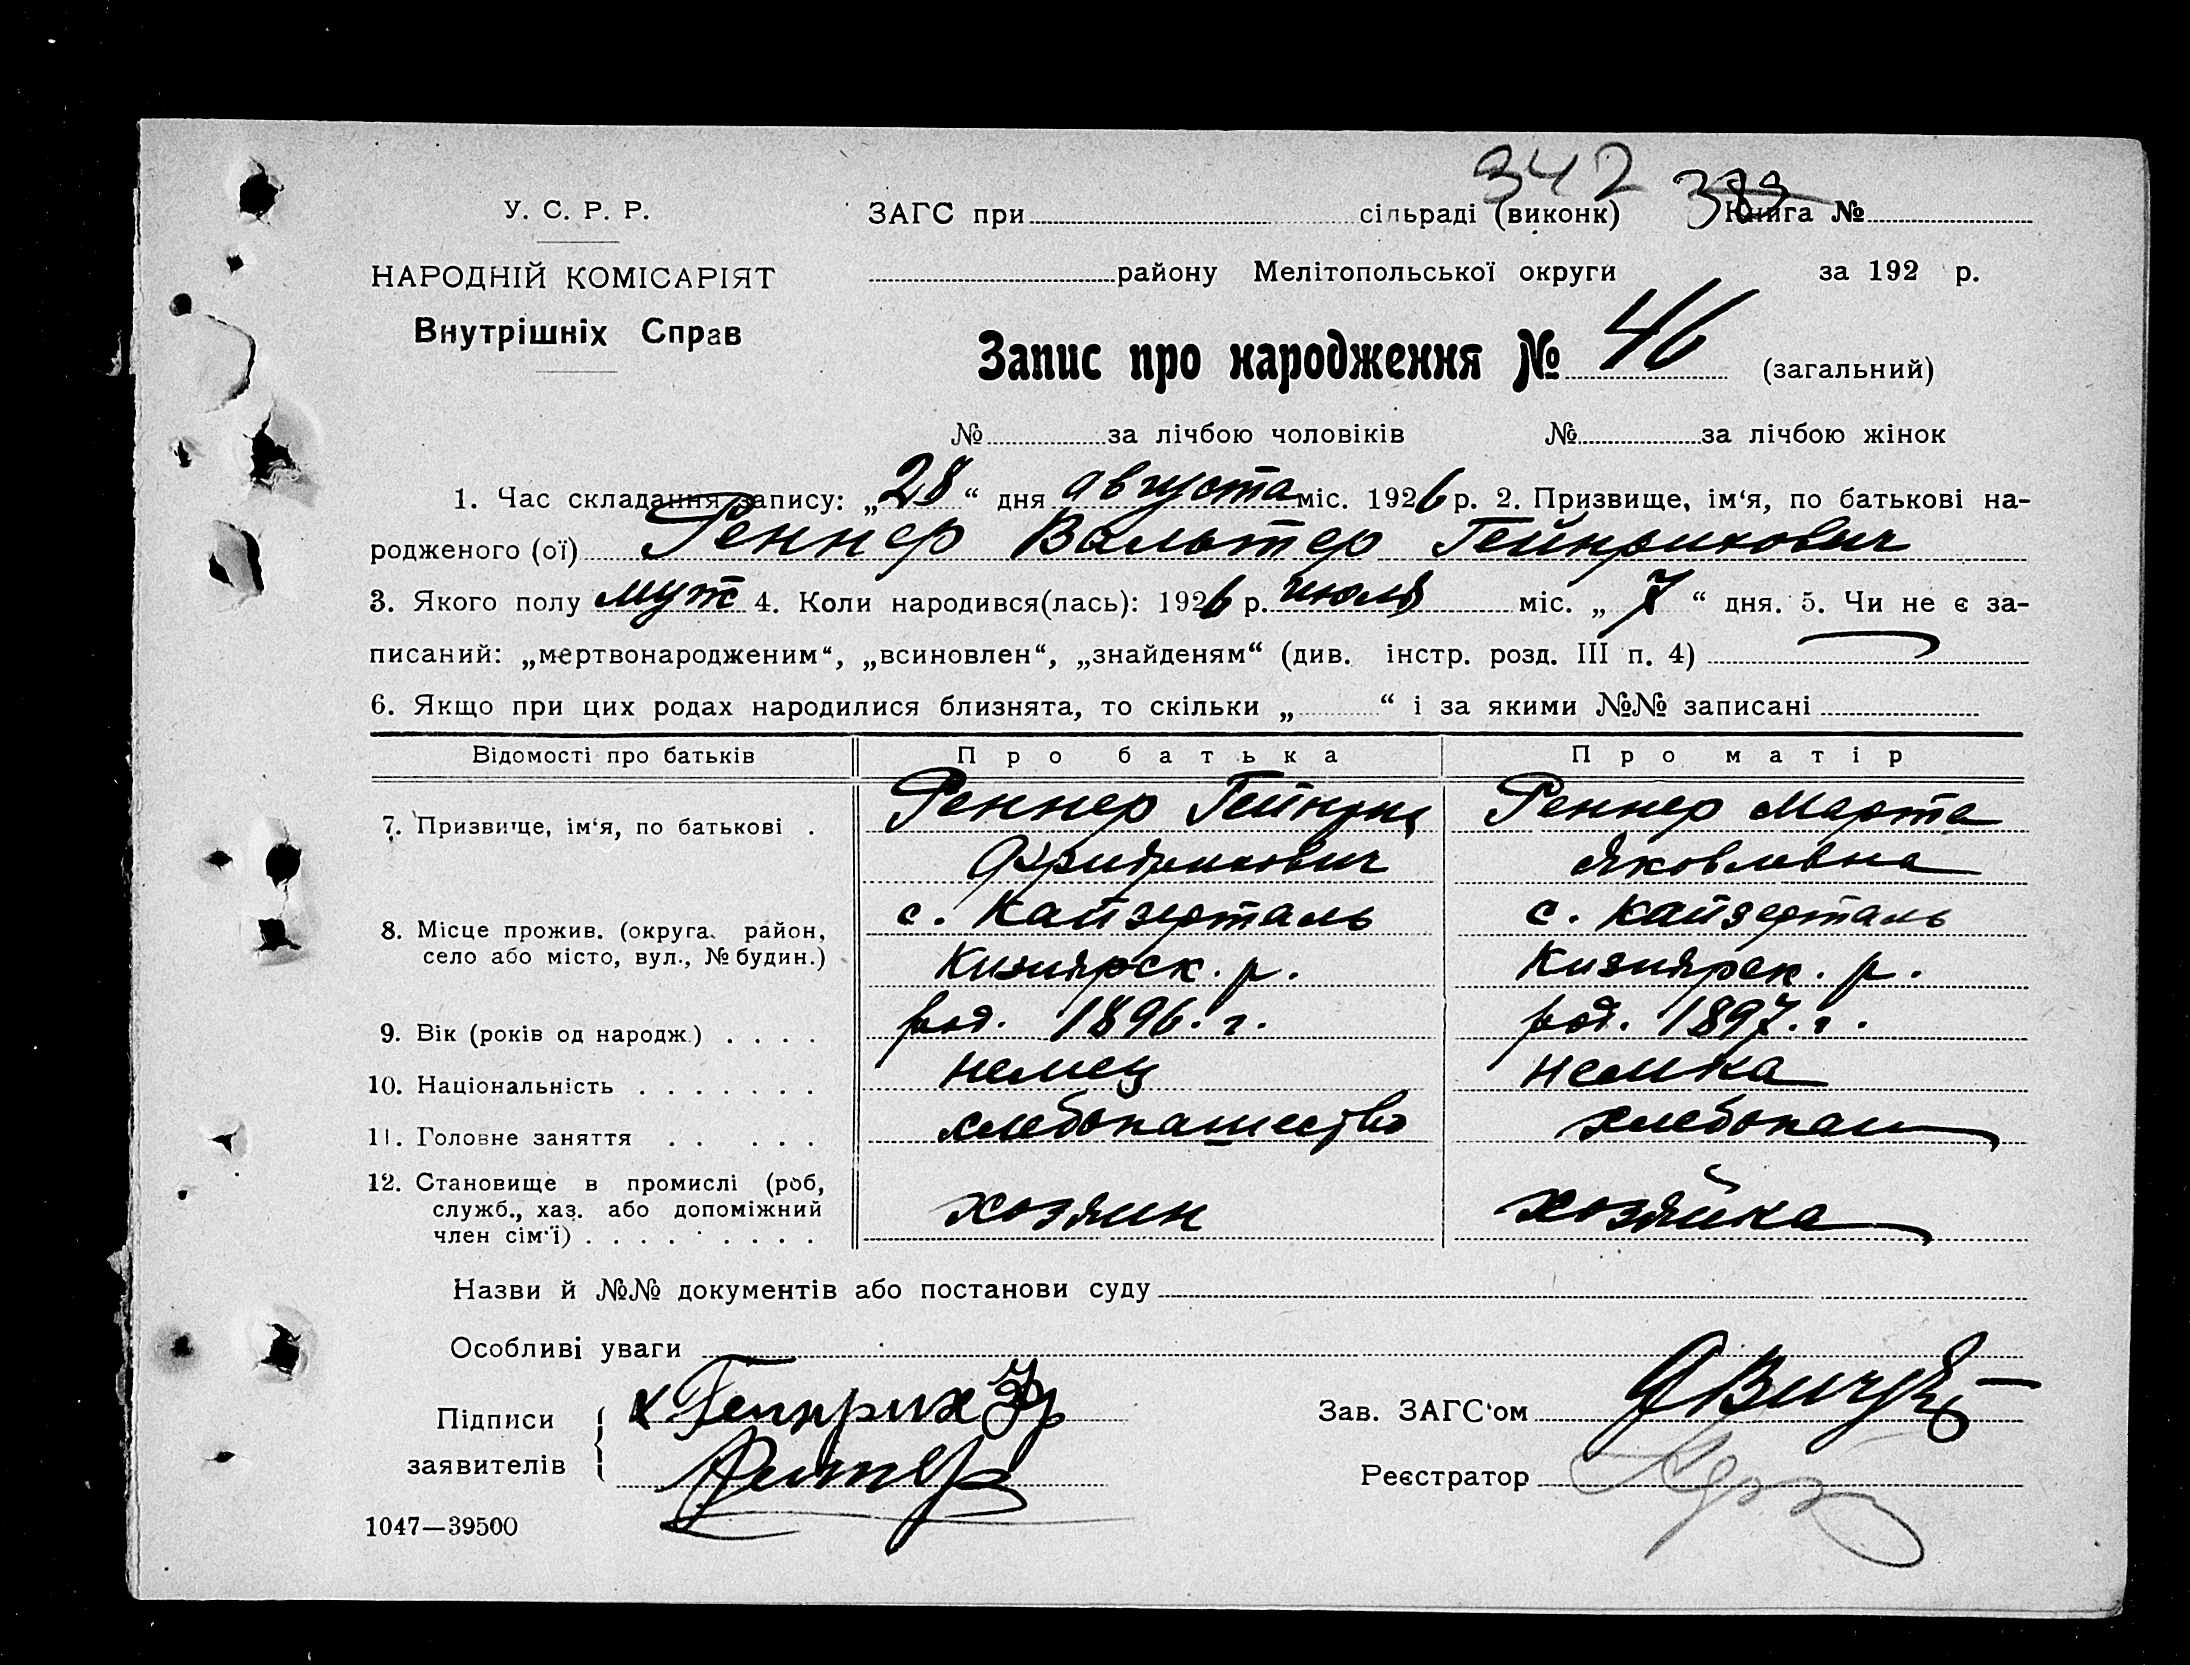 342 383
У. С. Р. Р. ЗАГС при сільраді (виконк) Книга №
НАРОДНІЙ КОМІСАРІЯТ району Мелітопольської округи за 192 р.
Внутрішніх Справ
Запис про народження № 46 (загальний)
№ за лічбою чоловіків № за лічбою жінок
1. Час складання запису: „28“ дня августа міс. 1926 р. 2. Призвище, ім‘я, по батькові на-
родженого (ої) Реннер Вальтер Гейнрихович
3. Якого полу муж 4. Коли народився(лась): 1926 р. июля міс. „7“ дня. 5. Чи не є за-
писаний: „мертвонародженим“, „всиновлен“, „знайденям“ (див. інстр. розд. III п. 4)
6. Якщо при цих родах народилися близнята, то скільки „ “ і за якими №№ записані
Відомості про батьків Про батька Про матір
7. Призвище, ім‘я, по батькові . Реннер Гейнрих Реннер Марта
Фридрихович Яковлевна
8. Місце прожив. (округа, район, с. Кайзерталь с. Кайзерталь
село або місто, вул., № будин.) Кизиярск. р. Кизиярск. р.
9. Вік (років од народж.) . . . . род. 1896. г. род. 1897. г.
10. Національність . . . . . . . немец немка
11. Головне заняття . . . . . хлебопашество хлебопаш
12. Становище в промислі (роб,
служб., хаз. або допоміжний хозяин хозяйка
член сім‘ї) . . . . . . . . .
Назви й №№ документів або постанови суду
Особливі уваги
Підписи Гейнрих Фр Зав. ЗАГС‘ом
заявителів Реннер Реєстратор
1047—39500